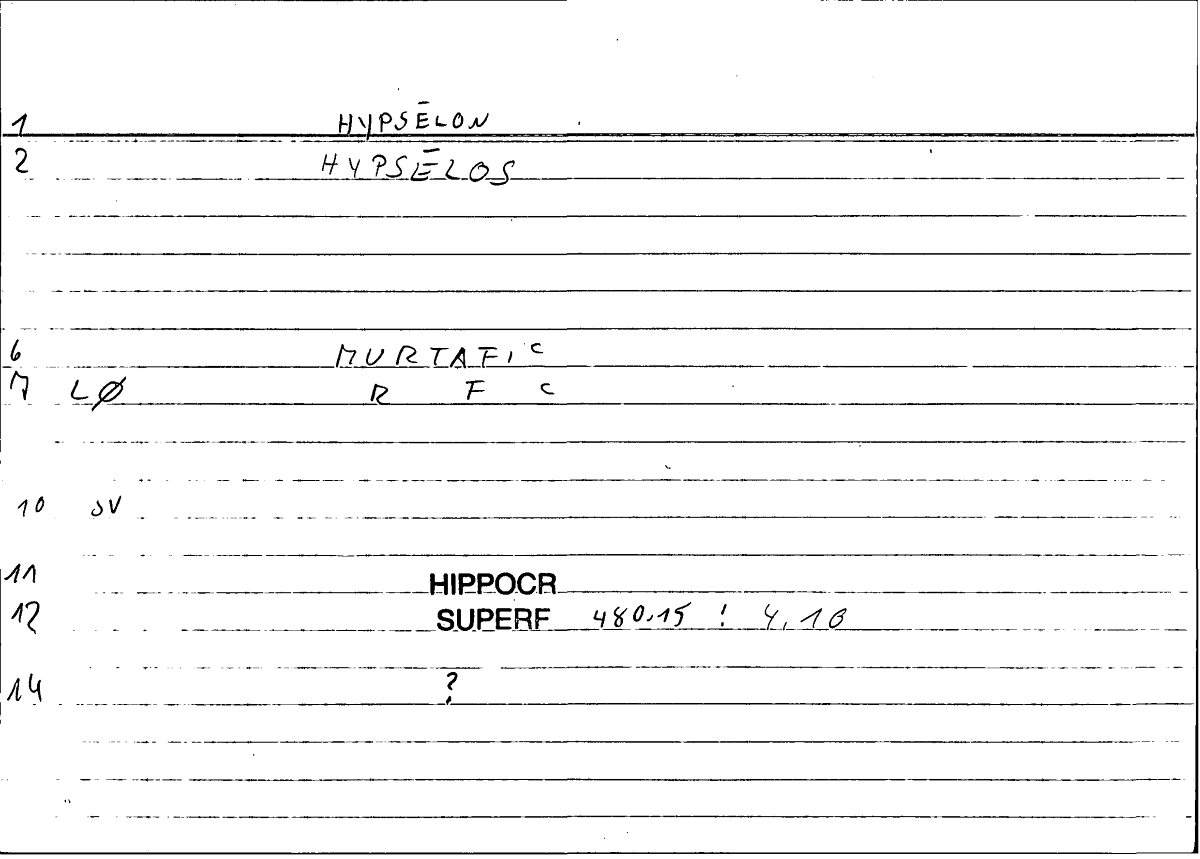 1 HYPSĒLON
2 HYPSĒLOS
6 MURTAFIᶜ
7 LØ R F ᶜ
10 SV
11 HIPPOCR
12 SUPERF 480,15 ! 4,10
14 ?